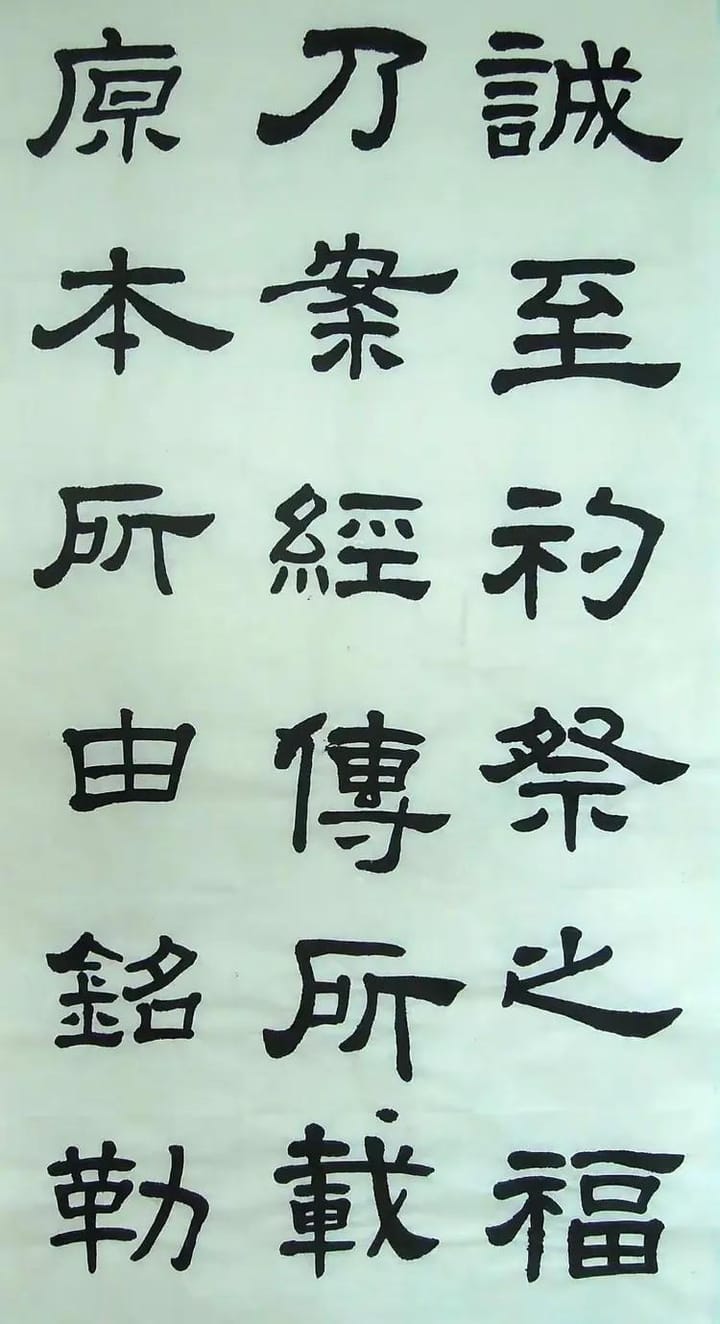 誠至礿祭之福
乃案經傳所載
原本所由銘勒